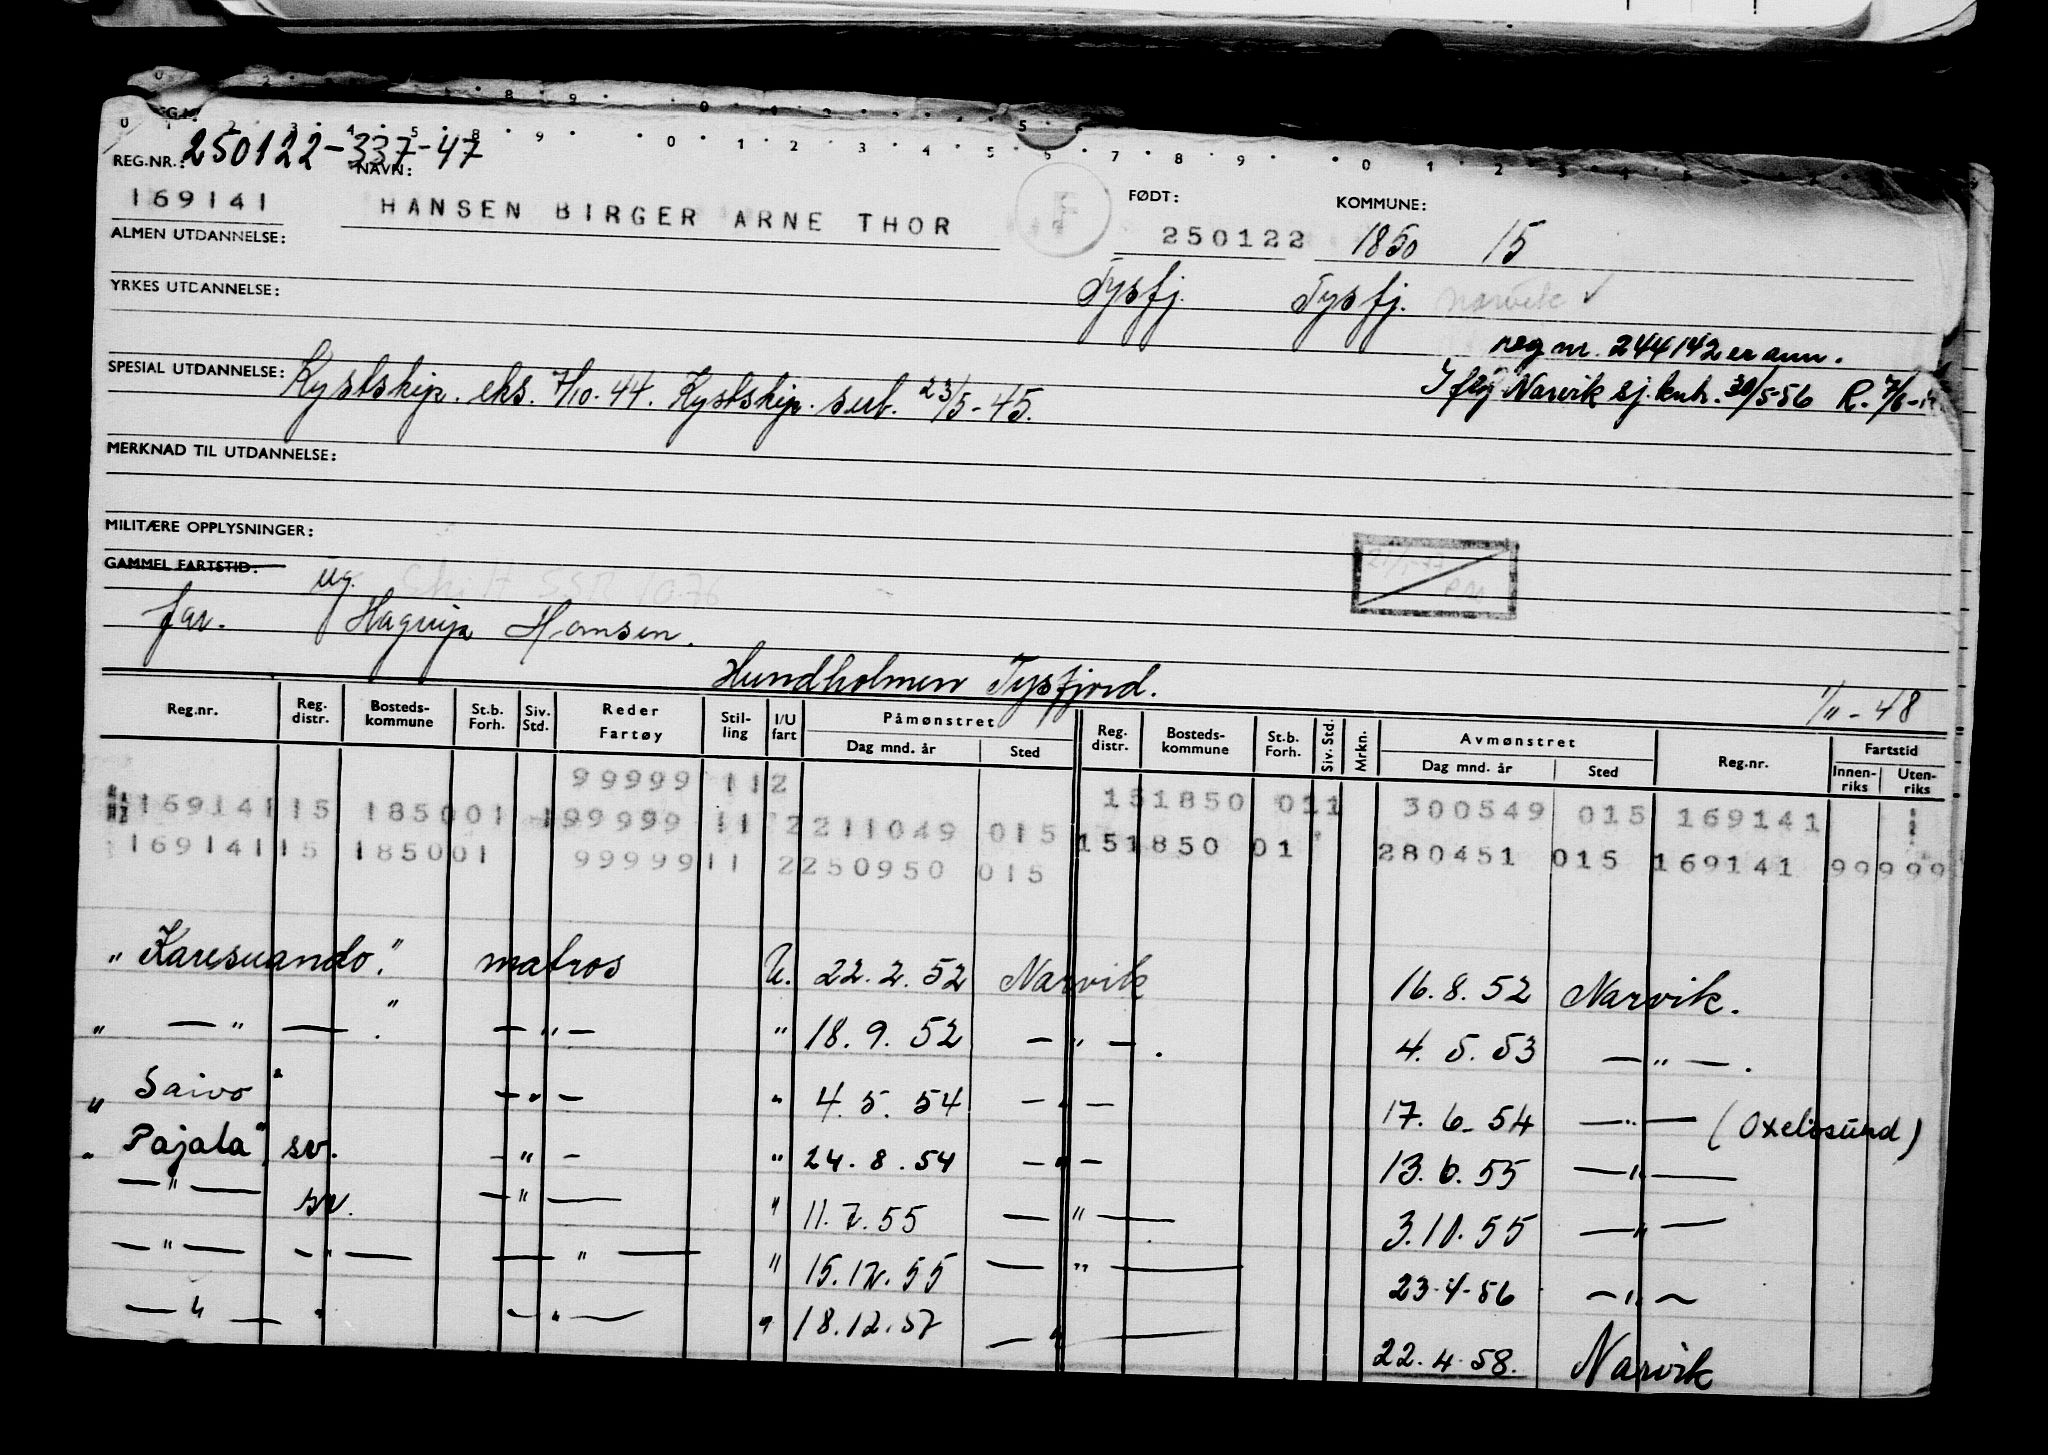 REG.NR.: 250122-337-47
NAVN:
FØDT:
KOMMUNE:
169141 HANSEN BIRGER ARNE THOR 250122 1850 15
ALMEN UTDANNELSE:
Tysfj. Tysfj. Narvik ✓
YRKES UTDANNELSE:
reg nr. 244142 er ann.
SPESIAL UTDANNELSE: Kystskip. eks. 7/10.44. Kystskip. sert. 23/5-45.
Narvik sj. 30/5-56
MERKNAD TIL UTDANNELSE:
MILITÆRE OPPLYSNINGER:
GAMMEL FARTSTID: ug.
far. Hansen.
Hundholmen Tysfjord.
1/11-48
Reg.nr. Reg. distr. Bosteds-kommune St.b. Forh. Siv. Std. Reder Fartøy Stil-ling I/U fart Påmønstret Dag mnd. år Sted Reg. distr. Bosteds-kommune St.b. Forh. Siv. Std. Mrkn. Avmønstret Dag mnd. år Sted Reg.nr. Fartstid Innen-riks Uten-riks
99999 112
169141 15 185001 199999 11 2211049 015 151850 011 300549 015 169141
169141 15 185001 99999 11 2250950 015 151850 01 280451 015 169141 99999
"Karesuando." matros U. 22.2.52 Narvik 16.8.52 Narvik.
" — " — ." — " — " 18.9.52 — " — . 4.5.53 — " — .
"Saivo" — " — " 4.5.54 — " — 17.6.54 — " — (Oxeløsund)
"Pajala", sv. — " — " 24.8.54 — " — 13.6.55 — " —
— " — sv. — " — " 11.7.55 — " — 3.10.55 — " —
— " — — " — — " — " 15.12.55 — " — 23.4-56 — " —
— " — " — " — " 18.12.57 — " — 22.4.58. Narvik